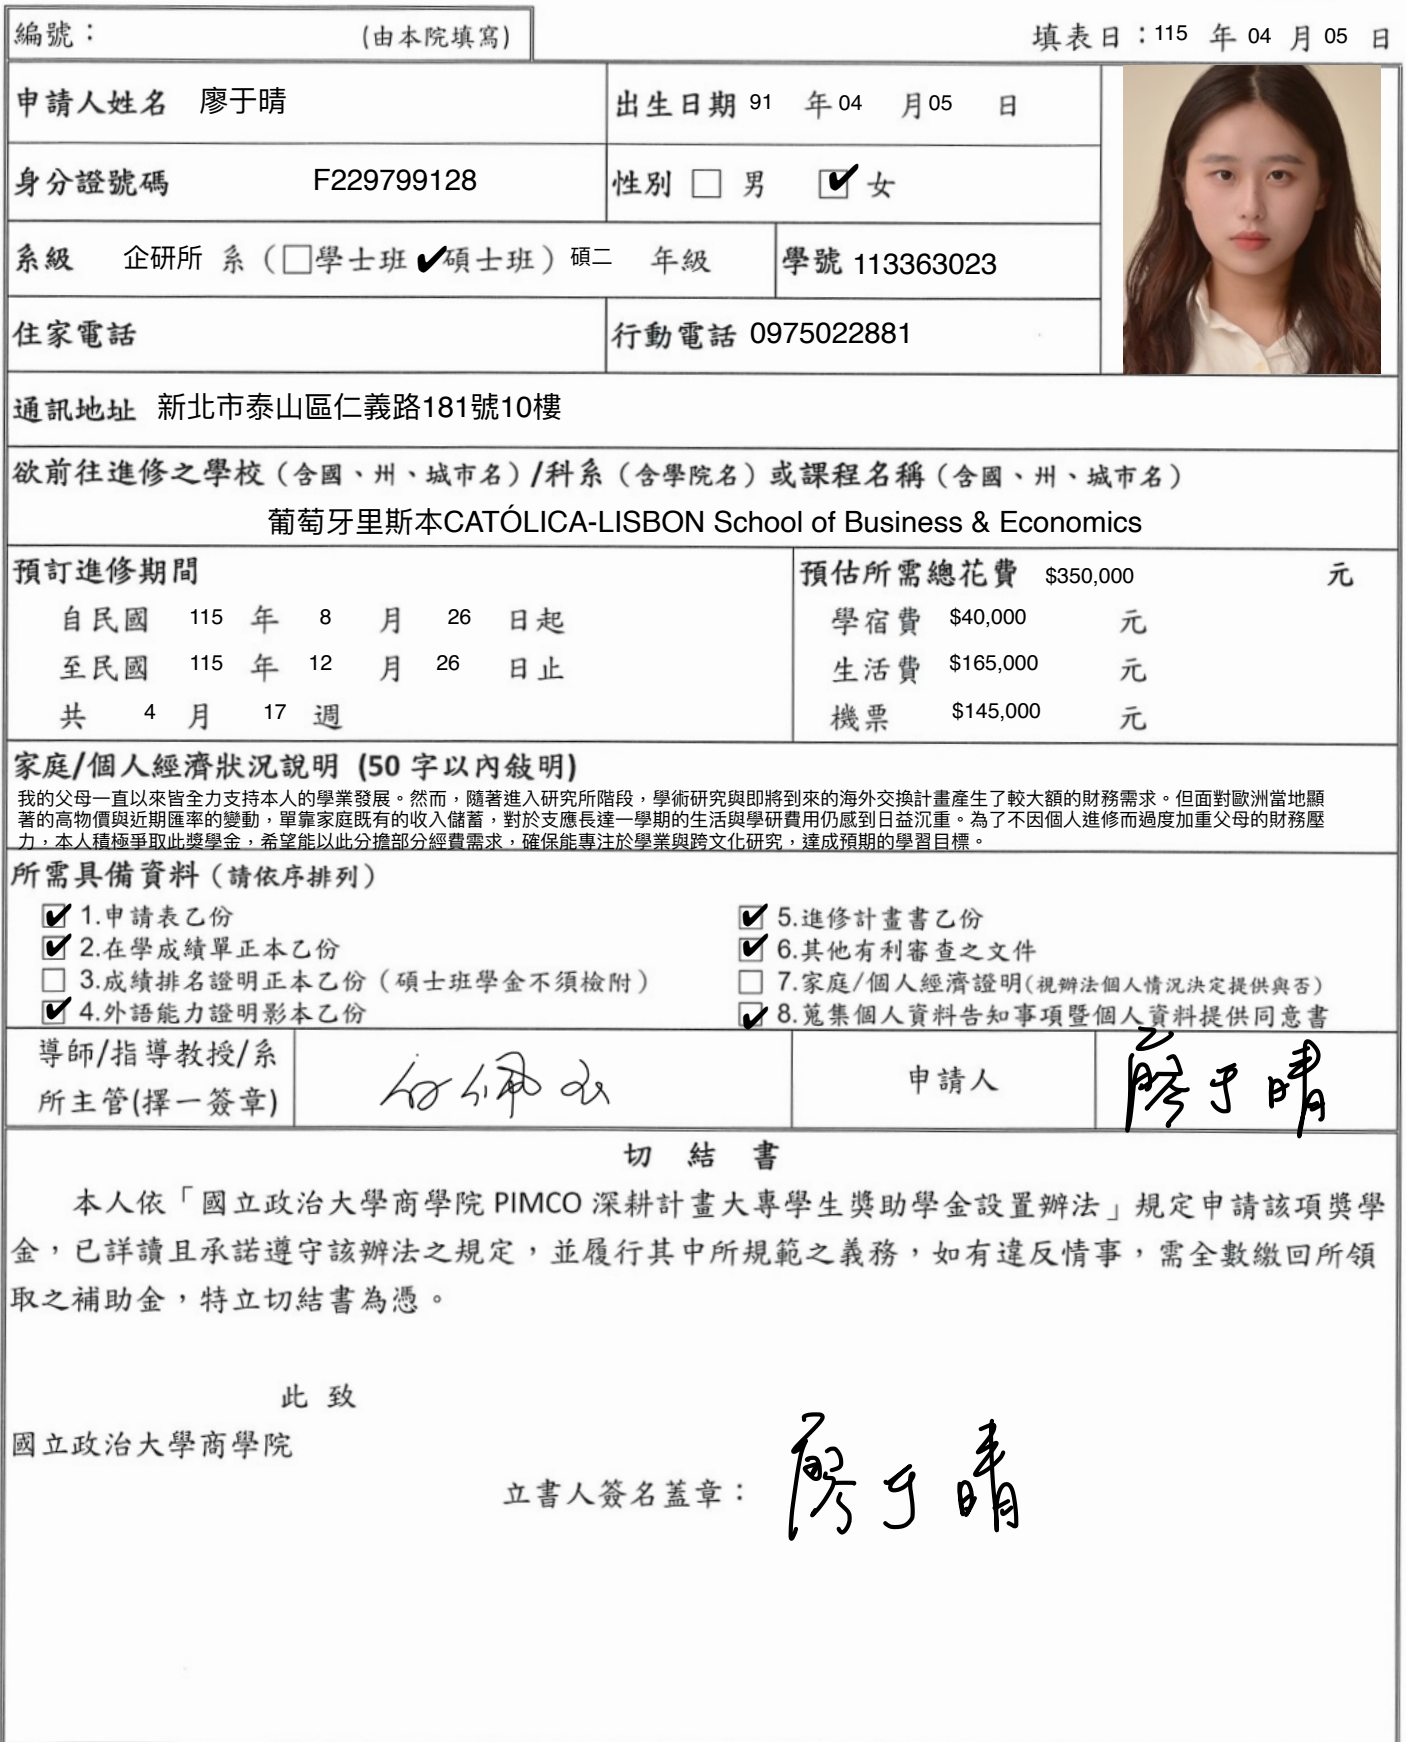 編號： (由本院填寫) 填表日：115 年 04 月 05 日
申請人姓名 廖于晴 出生日期 91 年 04 月 05 日
身分證號碼 F229799128 性別 □ 男 ☑ 女
系級 企研所 系（□學士班 ✔碩士班）碩二 年級 學號 113363023
住家電話 行動電話 0975022881
通訊地址 新北市泰山區仁義路181號10樓
欲前往進修之學校（含國、州、城市名）/科系（含學院名）或課程名稱（含國、州、城市名）
葡萄牙里斯本CATÓLICA-LISBON School of Business & Economics
預訂進修期間 預估所需總花費 $350,000 元
自民國 115 年 8 月 26 日起 學宿費 $40,000 元
至民國 115 年 12 月 26 日止 生活費 $165,000 元
共 4 月 17 週 機票 $145,000 元
家庭/個人經濟狀況說明 (50 字以內敍明)
我的父母一直以來皆全力支持本人的學業發展。然而，隨著進入研究所階段，學術研究與即將到來的海外交換計畫產生了較大額的財務需求。但面對歐洲當地顯
著的高物價與近期匯率的變動，單靠家庭既有的收入儲蓄，對於支應長達一學期的生活與學研費用仍感到日益沉重。為了不因個人進修而過度加重父母的財務壓
力，本人積極爭取此獎學金，希望能以此分擔部分經費需求，確保能專注於學業與跨文化研究，達成預期的學習目標。
所需具備資料（請依序排列）
☑ 1.申請表乙份 ☑ 5.進修計畫書乙份
☑ 2.在學成績單正本乙份 ☑ 6.其他有利審查之文件
□ 3.成績排名證明正本乙份（碩士班學金不須檢附） □ 7.家庭/個人經濟證明(視辦法個人情況決定提供與否)
☑ 4.外語能力證明影本乙份 ☑ 8.蒐集個人資料告知事項暨個人資料提供同意書
導師/指導教授/系
所主管(擇一簽章) 申請人 廖于晴
切 結 書
本人依「國立政治大學商學院 PIMCO 深耕計畫大專學生獎助學金設置辦法」規定申請該項獎學
金，已詳讀且承諾遵守該辦法之規定，並履行其中所規範之義務，如有違反情事，需全數繳回所領
取之補助金，特立切結書為憑。
此 致
國立政治大學商學院
立書人簽名蓋章： 廖于晴